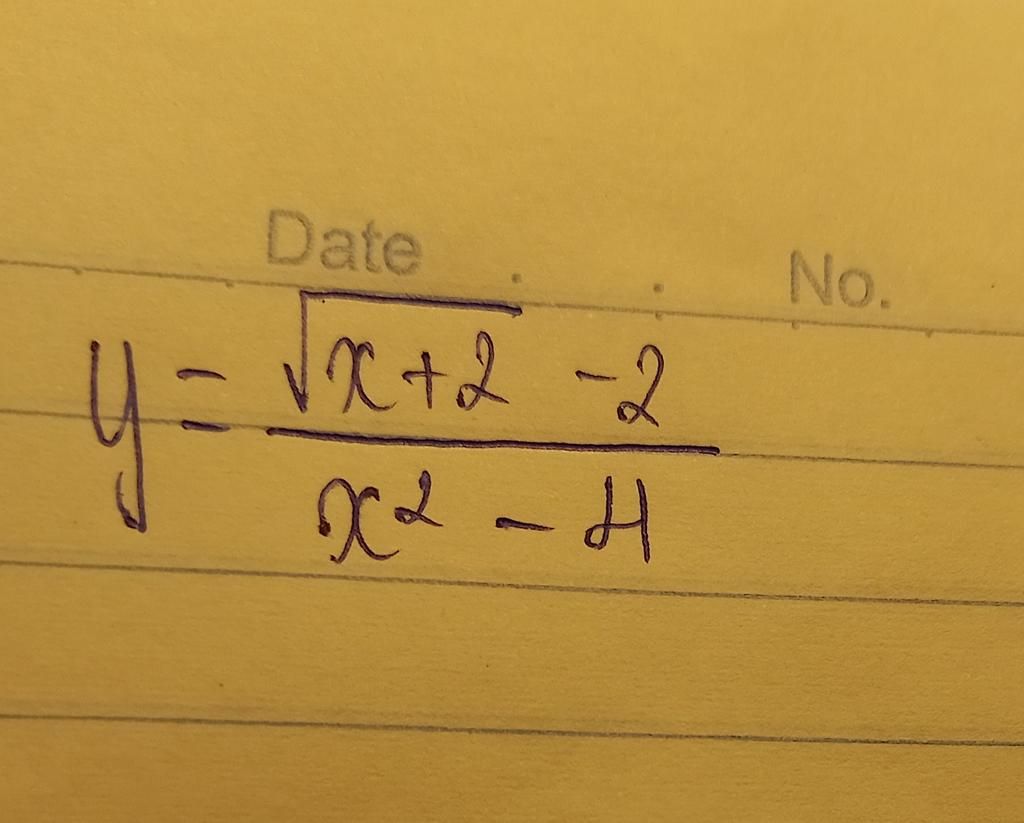 Date . . No.
y = √(x+2) - 2
x² - 4